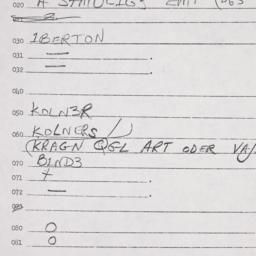 020 A
030 1BERTON
031 — .
032 — .
040
050 KOLN3R
060 KOLNERS /
(KRAGN QGL ART ODER
070 B1ND3
071 + .
072 — .
080 O
081 O